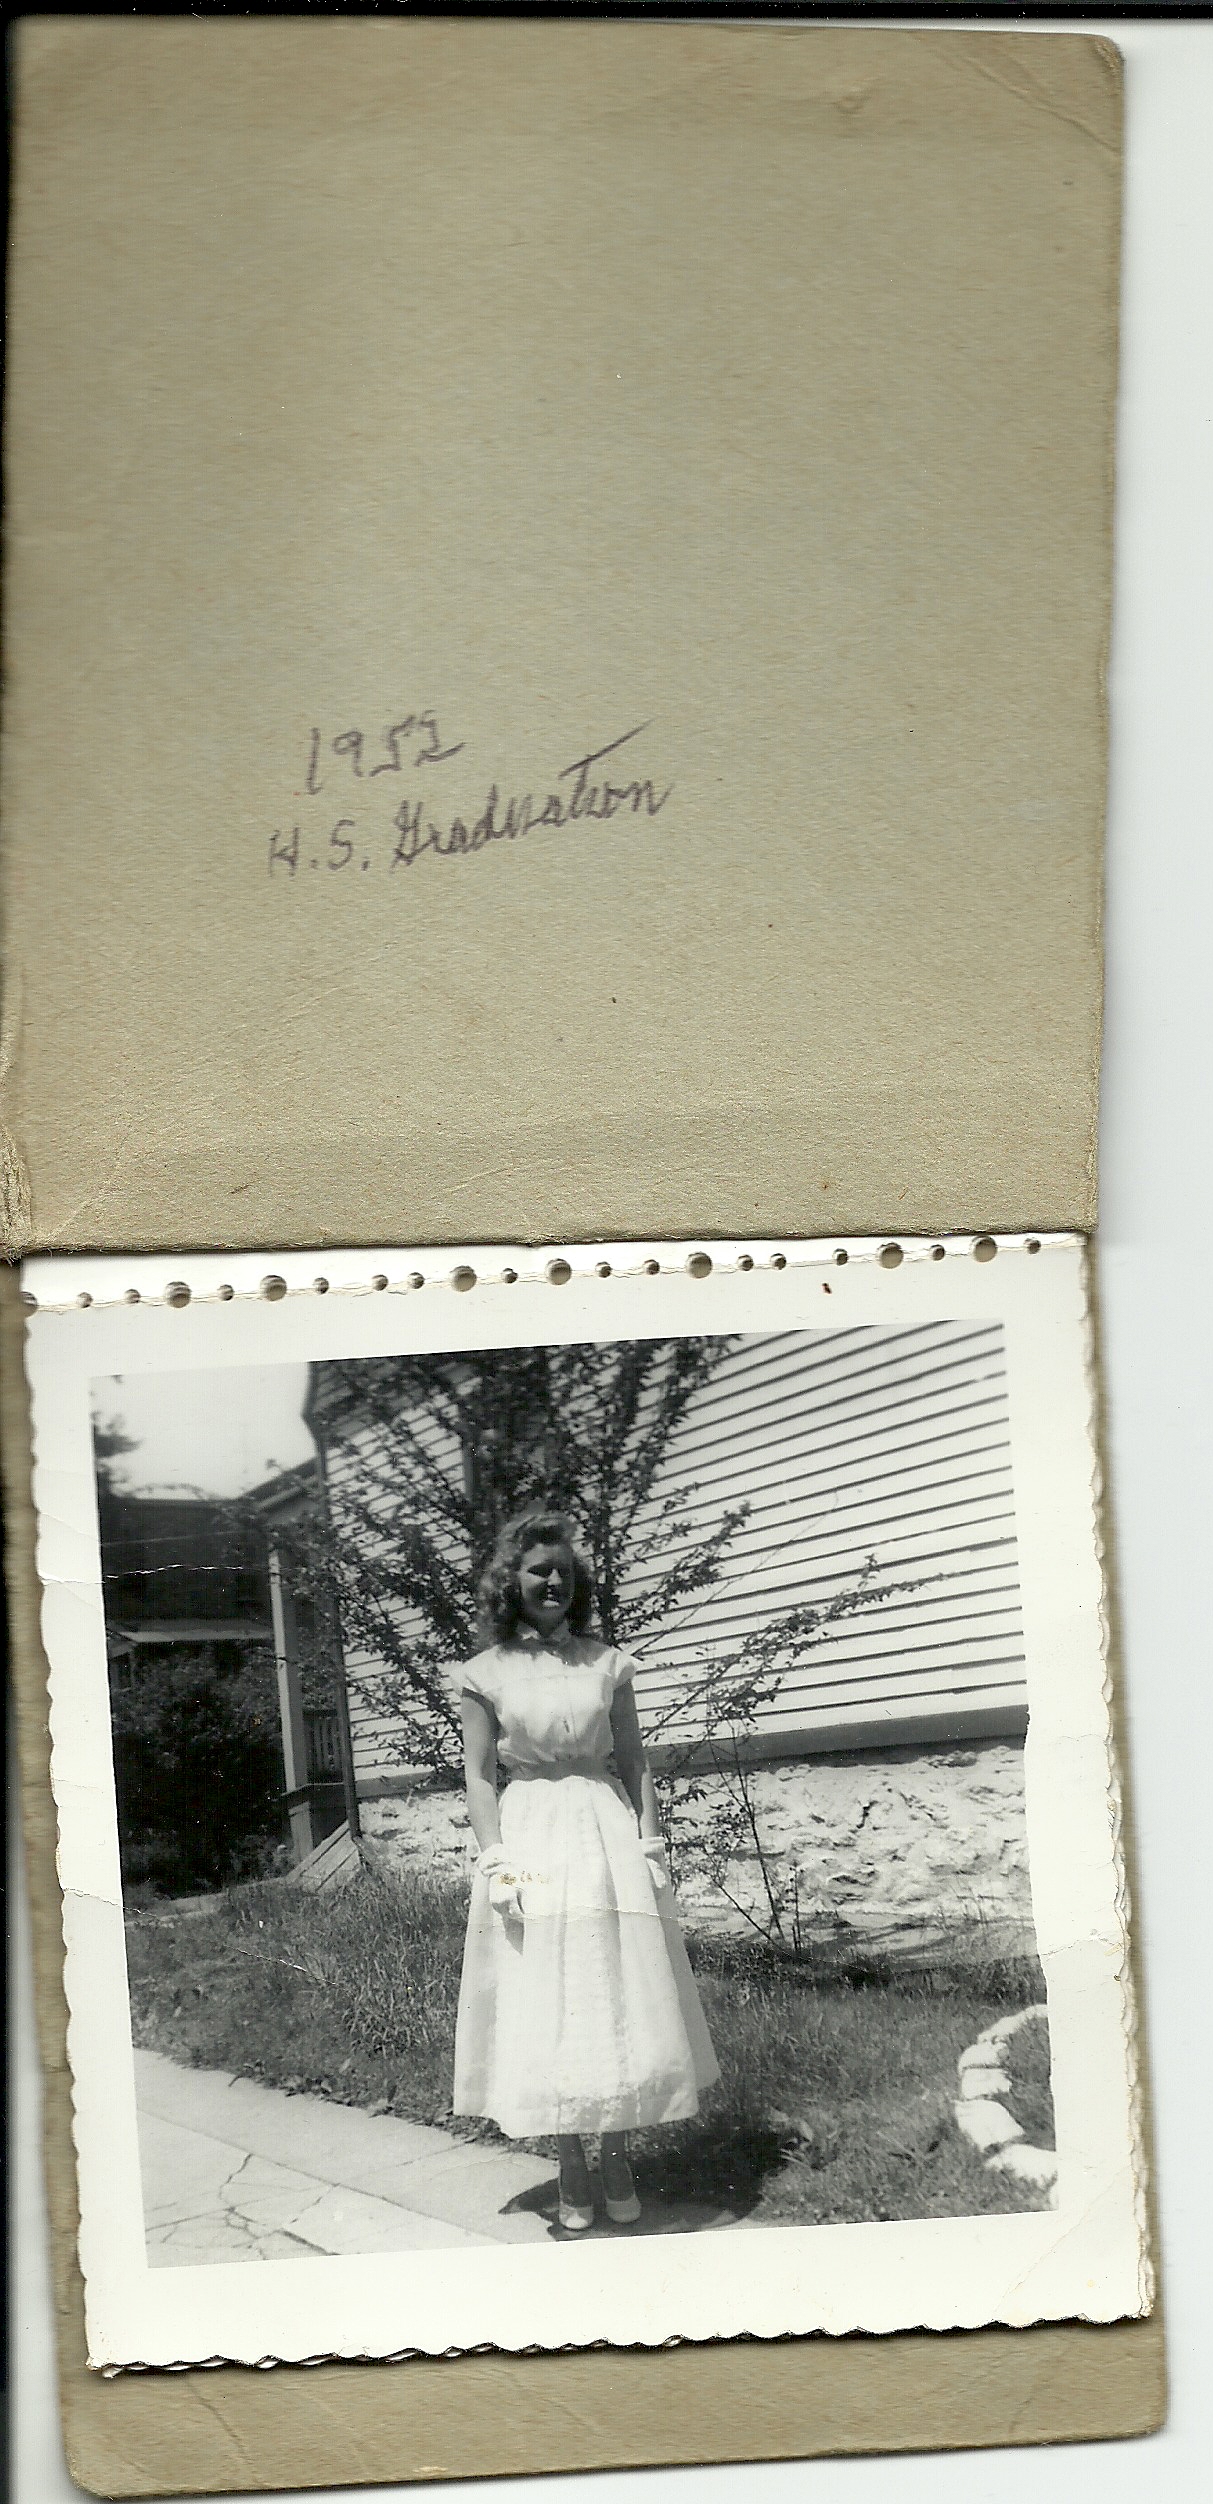 1952
H.S. Graduation